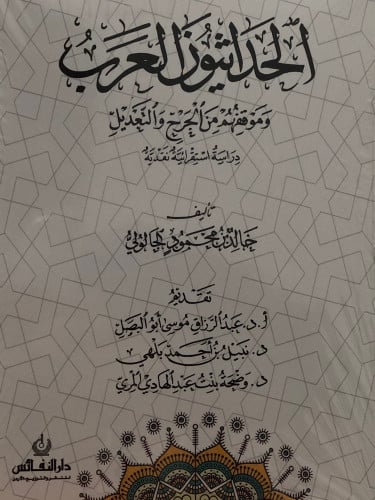 الحداثيون العرب
وموقفهم من الجرح والتعديل
دراسة استقرائية نقدية
تأليف
خالد بن محمود
تقديم
أ. د. عبد الرزاق موسى أبو البصل
د. نبيل بن أحمد بلهي
د. وضحة بنت عبد الهادي المري
دار النفائس
للنشر والتوزيع - الأردن